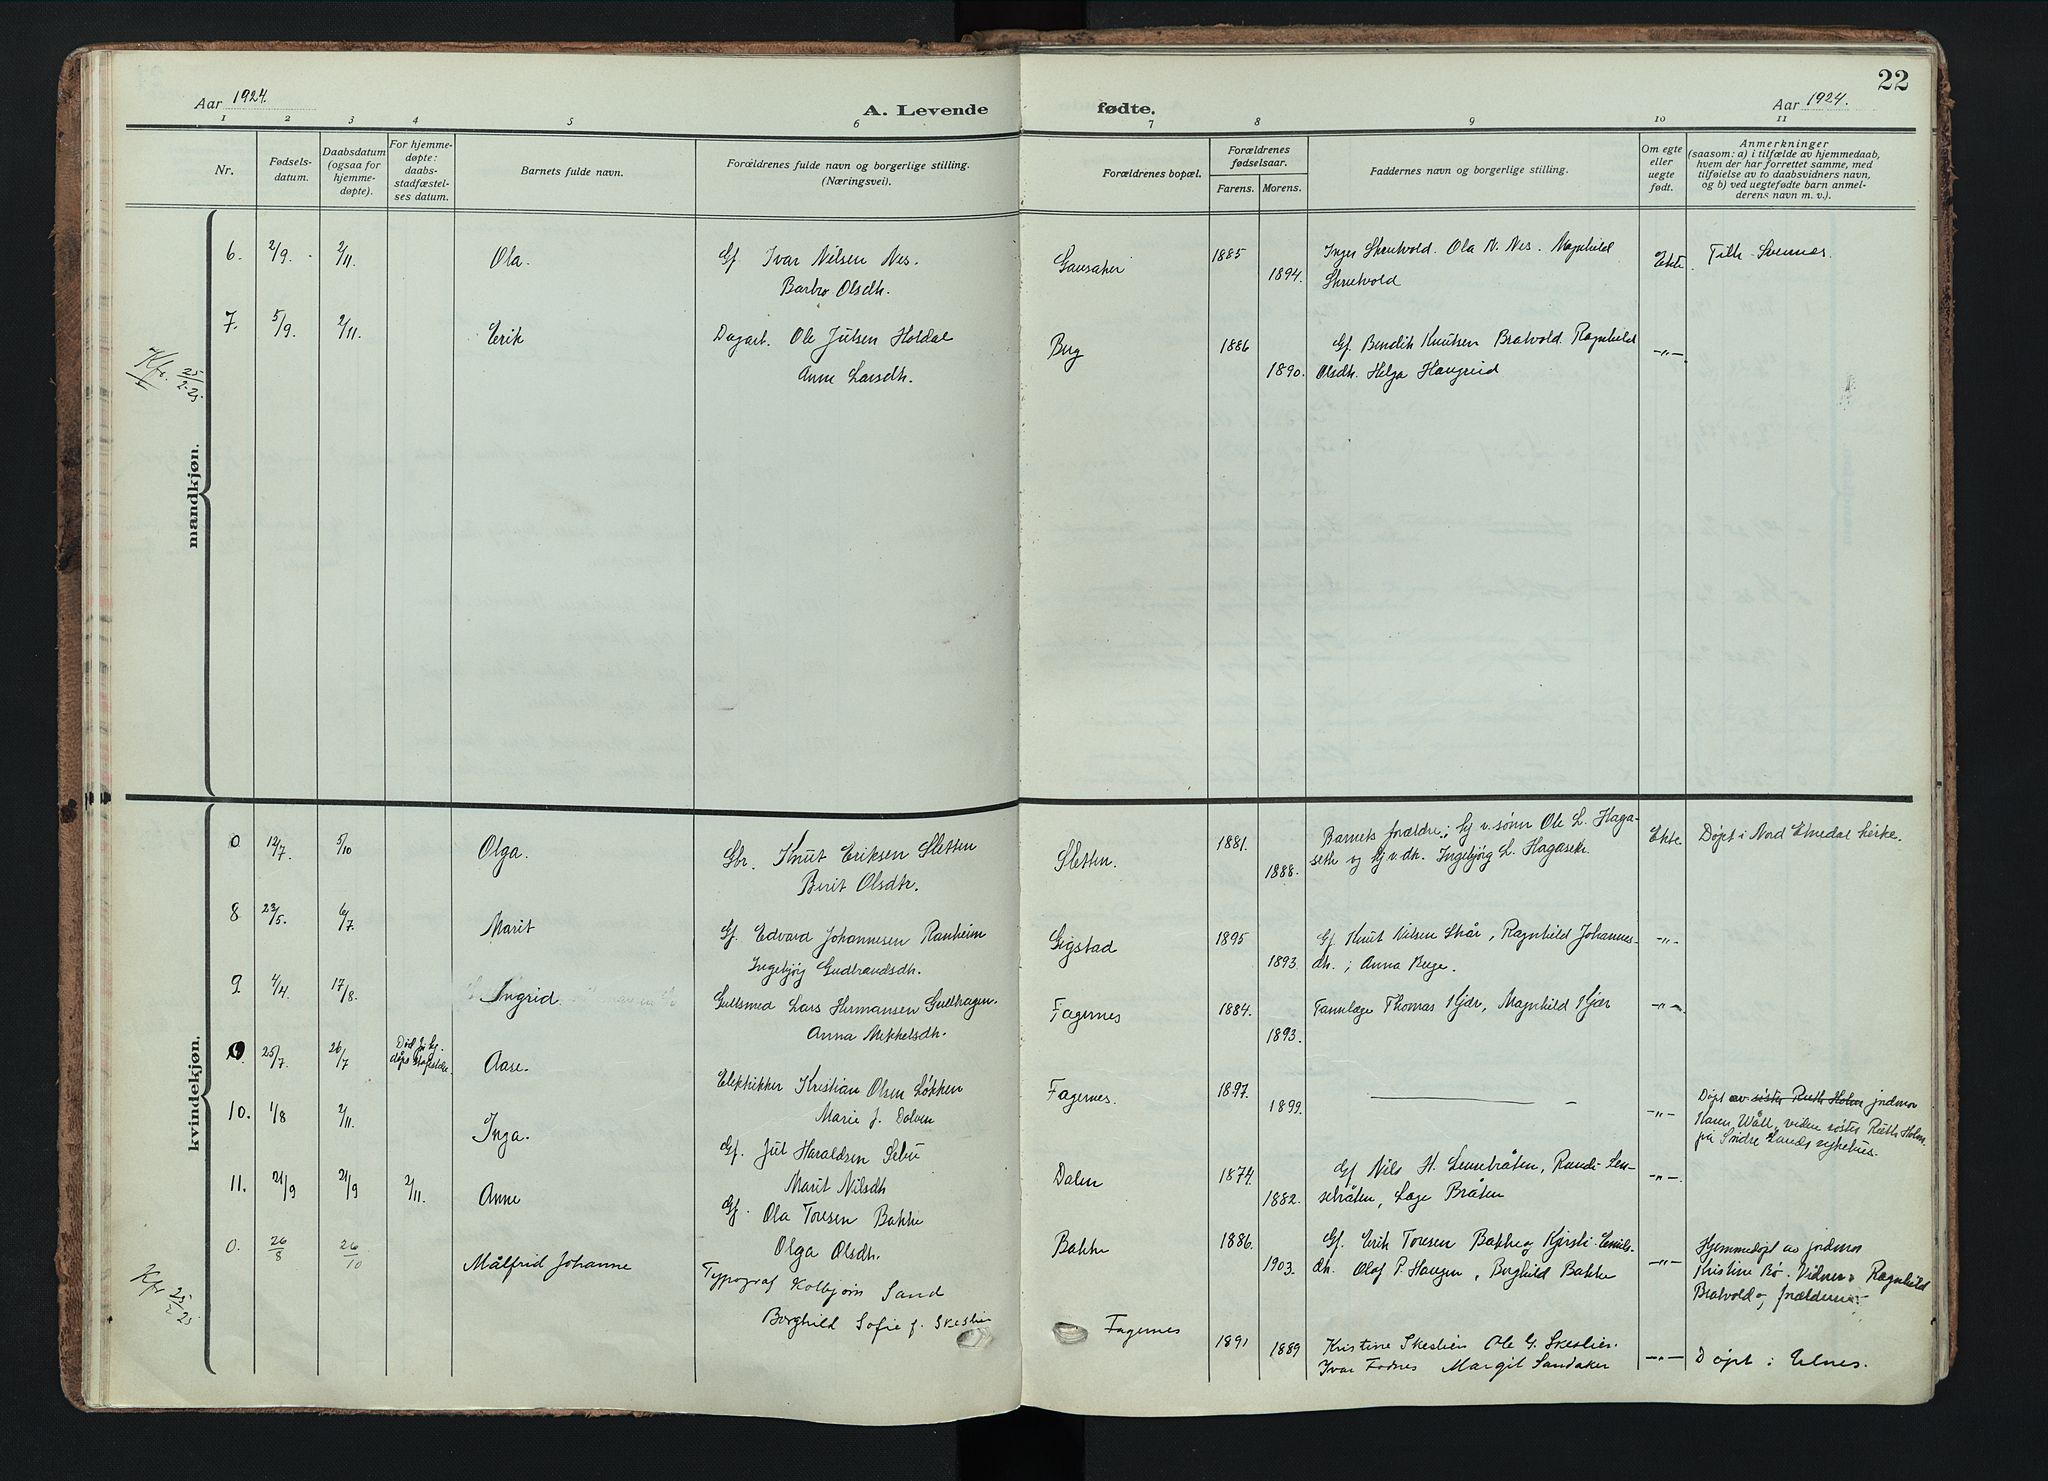 22
Aar 1924.
A. Levende fødte.
Aar 1924.
1 2 3 4 5 6 7 8 9 10 11
Nr.
Fødsels-
datum.
Daabsdatum
(ogsaa for
hjemme-
døpte).
For hjemme-
døpte:
daabs-
stadfæstel-
ses datum.
Barnets fulde navn.
Forældrenes fulde navn og borgerlige stilling.
(Næringsvei).
Forældrenes bopæl.
Forældrenes
fødselsaar.
Farens. Morens.
Faddernes navn og borgerlige stilling.
Om egte
eller
uegte
født.
Anmerkninger
(saasom: a) i tilfælde av hjemmedaab,
hvem der har forrettet samme, med
tilføielse av to daabsvidners navn,
og b) ved uegtefødte barn anmel-
derens navn m. v.).
mandkjøn.
6. 2/9. 2/11. Ola. Gf Ivar Nilsen Nes.
Barbro Olsdtr.
Gausaker 1885 1894.
Ola N. Nes. Magnhild
Ekte.
7. 5/9. 2/11. Erik Dagarb. Ole Julsen Holdal
Anne Larsdtr.
Berg 1886 1890.
Gf. Bendik Knutsen Bratvold. Ragnhild
Olsdtr. Helga Haugrud
—"—
Kfr. 25/2-25
kvindekjøn.
0 12/7. 5/10 Olga. Gbr. Knut Eriksen Sletten
Berit Olsdtr.
Sletten. 1881. 1888.
Barnets forældre; Gf v. sønn Ole L. Haga-
seth og Gf v. dtr. Ingebjørg L. Hagaseth.
Ekte. Døpt i Nord Etnedal kirke.
8 23/5. 6/7. Marit Gf. Edvard Johannesen Ranheim
Ingebjørg Gudbrandsdtr.
Gigstad 1895 1893.
Gf Knut Nilsen Skår, Ragnhild Johannes-
dtr.; Anna Berge.
—"—
9. 4/4. 17/8. Ingrid. Gullsmed Lars Hermansen Gullhagen.
Anna Mikkelsdtr.
Fagernes 1884. 1893.
Tannlæge Thomas Kjær, Magnhild Kjær
—"—
25/7. 26/7 Aase. Elektriker Kristian Olsen Løkken
Marie J. Dalen
Fagernes. 1897. 1899.
—"—
Døpt av søster Ruth Holm jordmor
Karen Wåll, vidne søster Ruth Holm
på Søndre Lands sykehus.
10. 1/8 2/11. Inga. Gf. Jul Haraldsen Sebu
Marit Nilsdtr
Dalen 1874. 1882.
Gf Nils H. Sennebråten, Randi Sen-
nebråten, Lage Bråten
—"—.
11. 21/9 21/9 2/11. Anne Gf. Ola Toresen Bakke
Olga Olsdtr.
Bakke 1886. 1903.
Gf. Erik Toresen Bakke og Kjersti Emils-
dtr. Olaf P. Haugen, Borghild Bakke
—"—
Hjemmedøpt av jordmor
Kristine Bø. Vidner: Ragnhild
Bratvold og forældrene.
0. 26/8 26/10 Målfrid Johanne
Typograf Kolbjørn Sand
Borghild Sofie f. Skeslien
Fagernes 1891 1889
Kristine Skeslien Ole G. Skeslien.
Ivar Fodnes Margit Sandaker
—"— Døpt i Ulnes.
Kfr 25/2 25